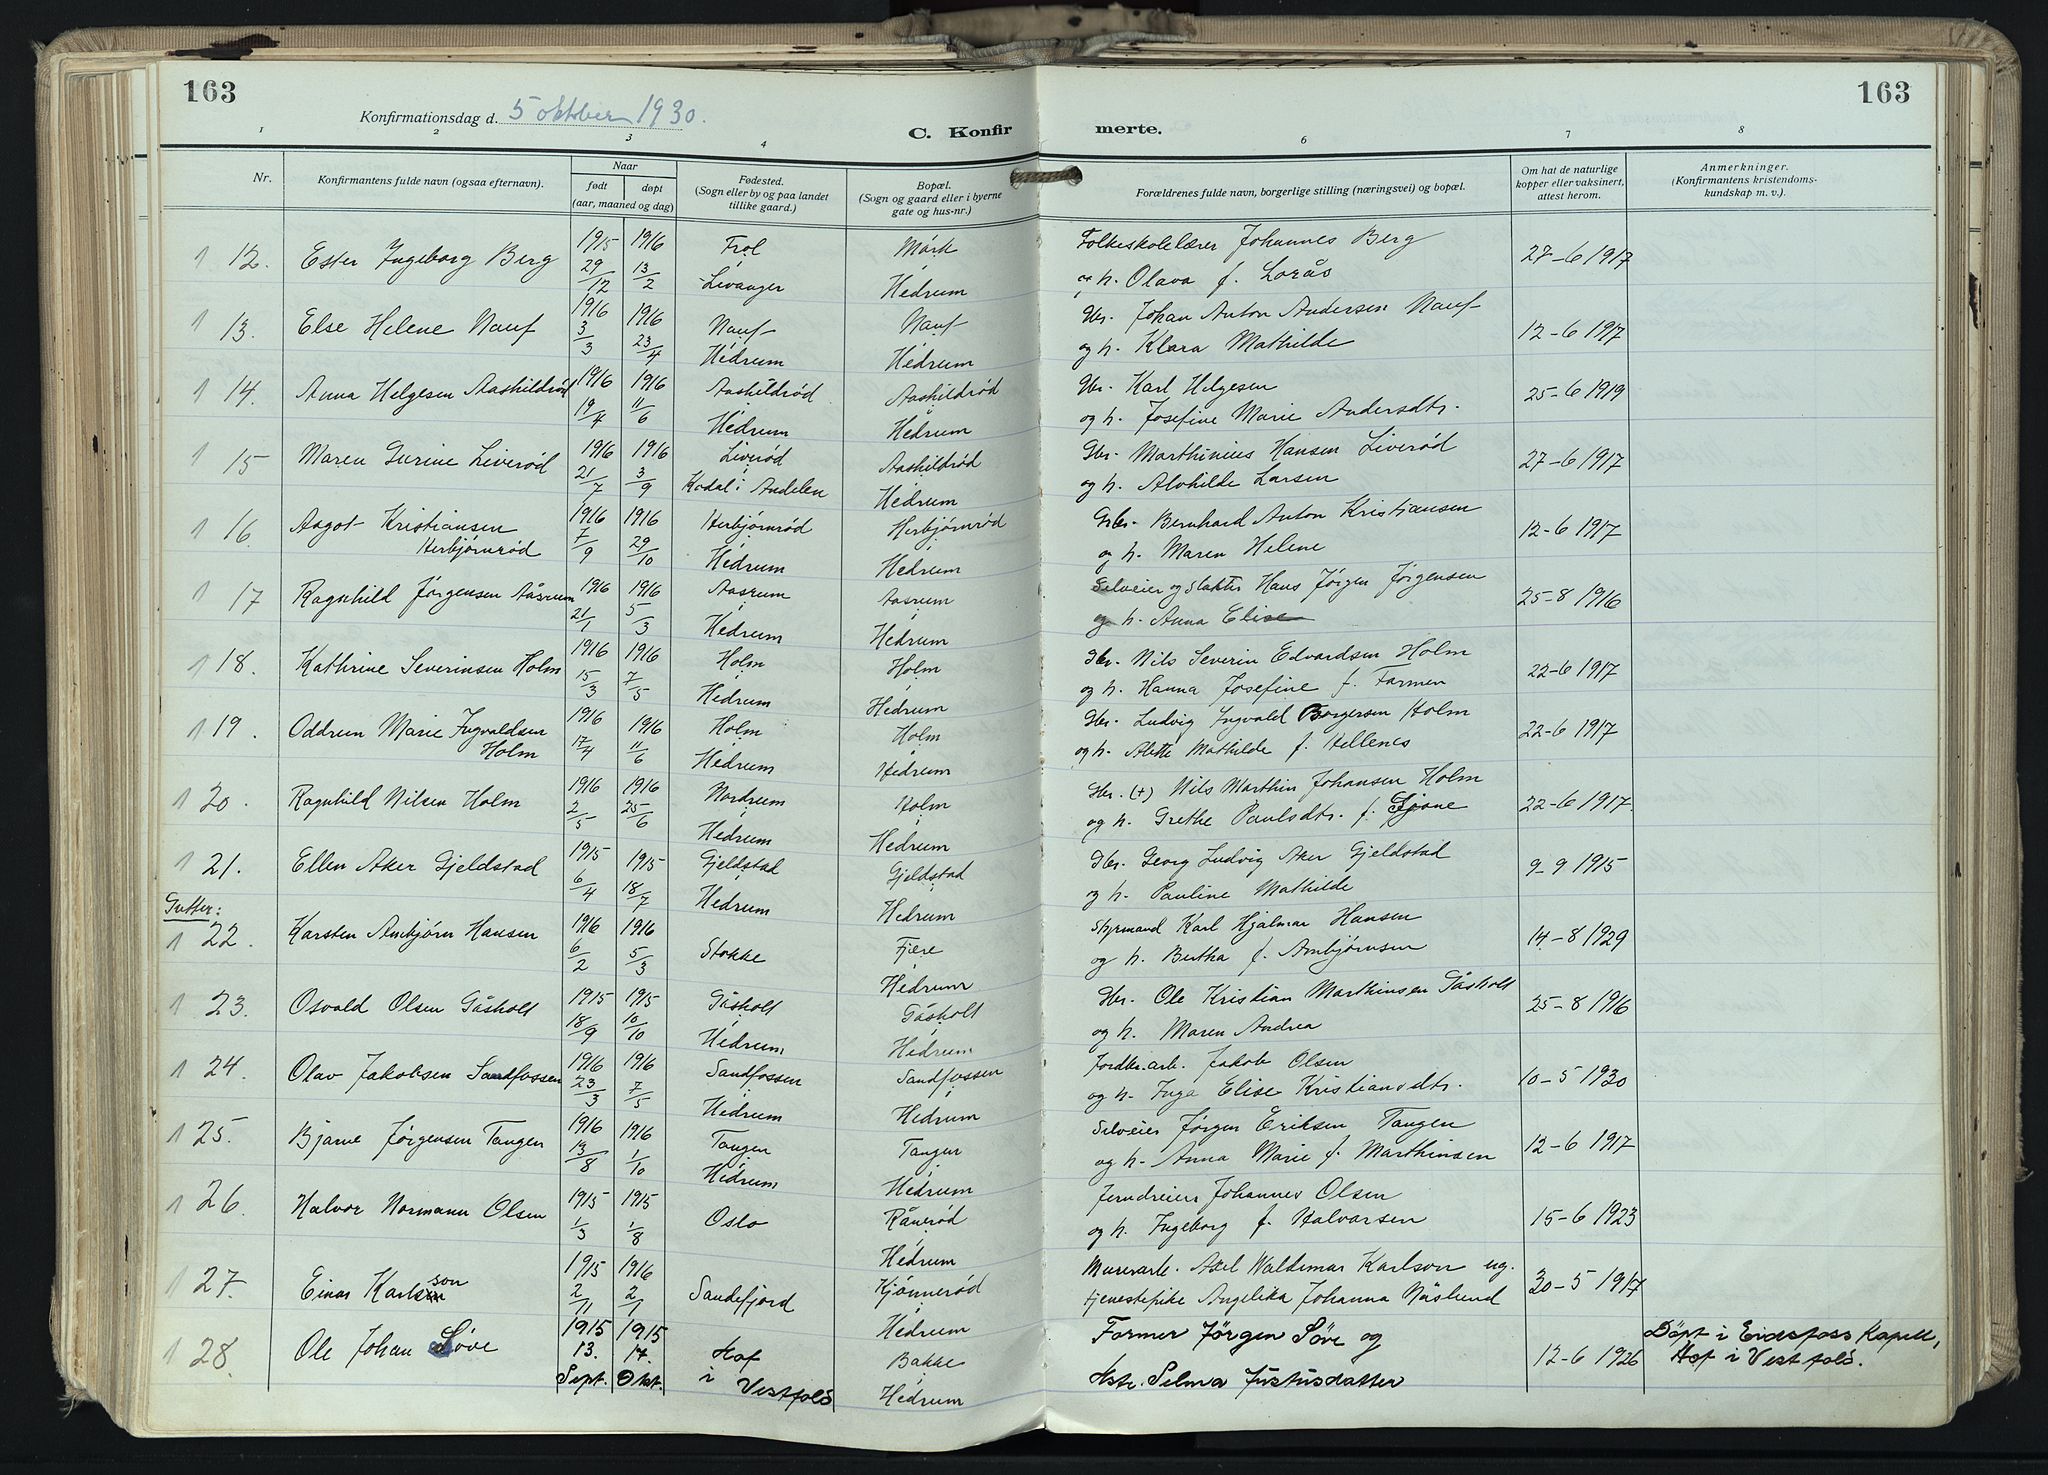 163
163
Konfirmationsdag d. 5 oktober 1930.
C. Konfir
merte.
1 2 3 4 6 7 8
Nr.
Konfirmantens fulde navn (ogsaa efternavn).
Naar
født døpt
(aar, maaned og dag)
Fødested.
(Sogn eller by og paa landet
tillike gaard.)
Bopæl.
(Sogn og gaard eller i byerne
gate og hus-nr.)
Forældrenes fulde navn, borgerlige stilling (næringsvei) og bopæl.
Om hat de naturlige
kopper eller vaksinert,
attest herom.
Anmerkninger.
(Konfirmantens kristendoms-
kundskap m. v.).
1 12. Ester Ingeborg Berg 1915 29/12 1916 13/2 Frol Levanger Mørk Hedrum Folkeskolelærer Johannes Berg
og h. Olava f. Lorås 27-6 1917
1 13. Else Helene Nauf 1916 3/3 1916 23/4 Nauf Hedrum Nauf Hedrum Gbr. Johan Anton Andersen Nauf
og h. Klara Mathilde 12-6 1917
1 14. Anna Helgesen Aashildrød 1916 19/4 1916 11/6 Aashildrød Hedrum Aashildrød Hedrum Gbr. Karl Helgesen
og h. Josefine Marie Andersdtr. 25-6 1919
1 15 Maren Gurine Liverød 1916 21/7 1916 3/9 Liverød Kodal i Andebu Aashildrød Hedrum Gbr. Marthinius Hansen Liverød
og h. Alvhilde Larsen 27-6 1917
1 16. Aagot Kristiansen
Herbjørnrød 1916 7/9 1916 29/10 Herbjørnrød Hedrum Herbjørnrød Hedrum Gbr. Bernhard Anton Kristiansen
og h. Maren Helene 12-6 1917
1 17 Ragnhild Jørgensen Åsrum 1916 21/1 1916 5/3 Aasrum Hedrum Aasrum Hedrum Selveier og slakter Hans Jørgen Jørgensen
og h. Anna Elise 25-8 1916
1 18. Kathrine Severinsen Holm 1916 15/3 1916 7/5 Holm Hedrum Holm Hedrum Gbr. Nils Severin Edvardsen Holm
og h. Hanna Josefine f. Farmen 22-6 1917
1 19. Oddrun Marie Ingvaldsen
Holm 1916 17/4 1916 11/6 Holm Hedrum Holm Hedrum Gbr. Ludvig Ingvald Borgersen Holm
og h. Alette Mathilde f. Hellenes 22-6 1917
1 20. Ragnhild Nilsen Holm 1916 2/5 1916 25/6 Nordrum Hedrum Holm Hedrum Gbr. (+) Nils Marthin Johansen Holm
og h. Grethe Paulsdtr. f. 22-6 1917.
1 21. Ellen Aker Gjeldstad 1915 6/4 1915 18/7 Gjeldstad Hedrum Gjeldstad Hedrum Gbr. Georg Ludvig Aker Gjeldstad
og h. Pauline Mathilde 9-9 1915
Gutter:
1 22. Karsten Arnbjørn Hansen 1916 6/2 1916 5/3 Stokke Fjære Hedrum Styrmand Karl Hjalmar Hansen
og h. Bertha f. Arnbjørnsen 14-8 1929
1 23. Osvald Olsen Gåsholt 1915 18/9 1915 10/10 Gåsholt Hedrum Gåsholt Hedrum Gbr. Ole Kristian Marthinsen Gåsholt
og h. Maren Andrea 25-8 1916
1 24. Olav Jakobsen Sandfossen 1916 23/3 1916 7/5 Sandfossen Hedrum Sandfossen Hedrum Jordbr.arb. Jakob Olsen
og h. Inga Elise Kristiansdtr. 10-5 1930
1 25. Bjarne Jørgensen Tangen 1916 13/8 1916 1/10 Tangen Hedrum Tangen Hedrum Selveier Jørgen Eriksen Tangen
og h. Anna Marie f. Marthinsen 12-6 1917
1 26. Halvor Normann Olsen 1915 1/3 1915 1/8 Oslo Rånerød Hedrum Jerndreier Johannes Olsen
og h. Ingeborg f. Halvorsen 15-6 1923
1 27. Einar Karlson 1915 2/11 1916 2/1 Sandefjord Kjønnerød Hedrum Murerarb. Axel Waldemar Karlson ug.
tjenestepike Angelika Johanna Näslund 30-5 1917
1 28. Ole Johan Søve 1915 13. Sept. 1915 17. Okt. Hof i Vestfold Bakke Hedrum Farmer Jørgen Söve og
Hstr. Selma Justusdatter 12-6 1926 Döpt i Eidsfoss Kapell,
Hof i Vestfold.